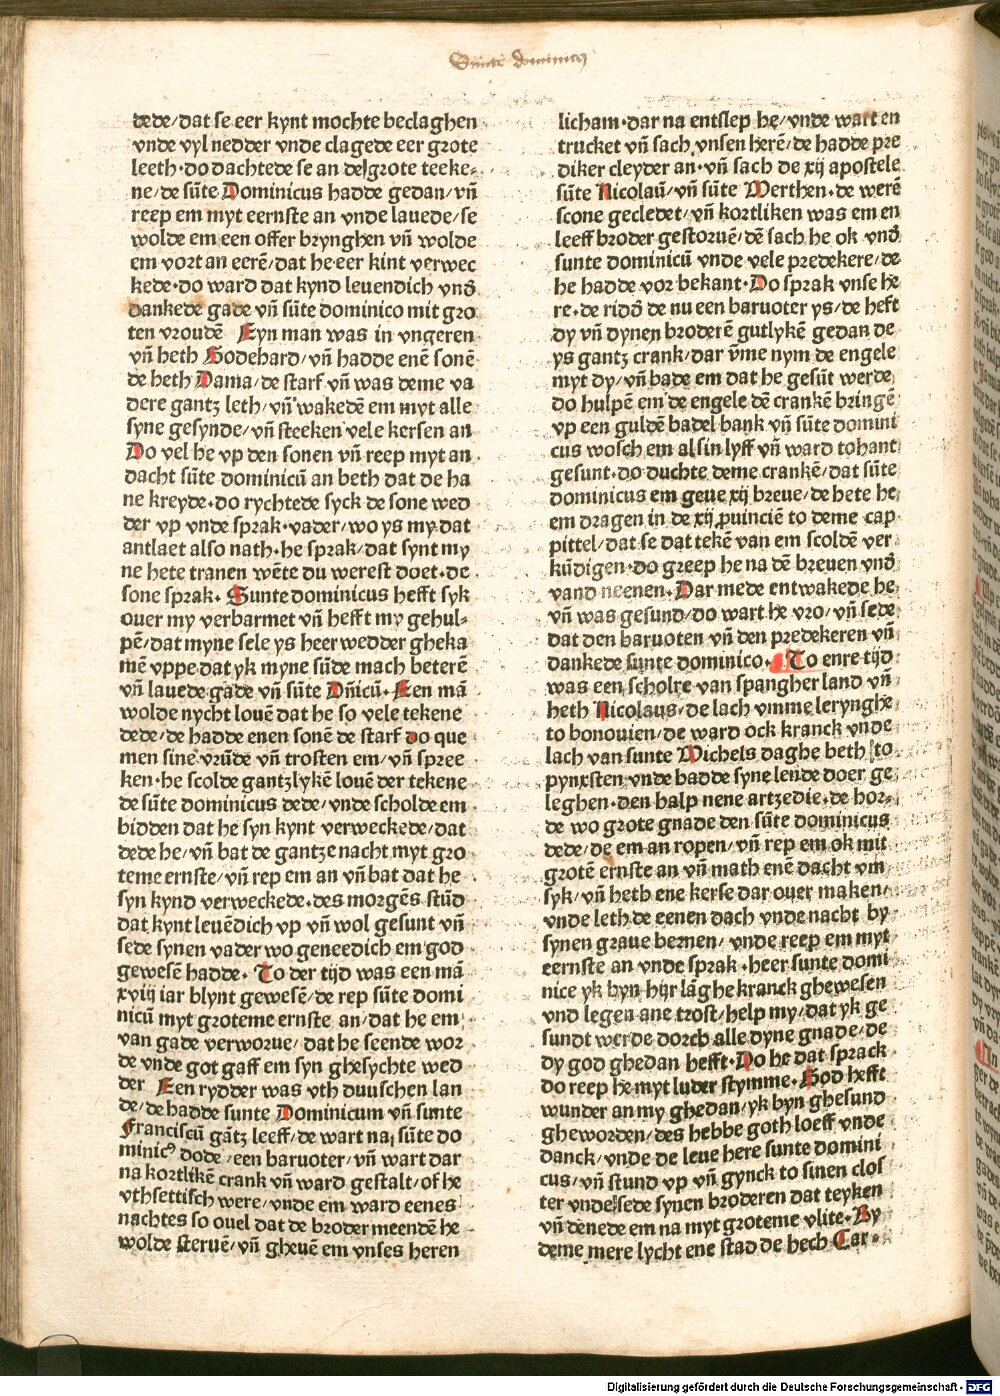 Sancte dominicus
dede/dat se eer kynt mochte beclaghen
vnde vyl nedder vnde clagede eer grote
leeth·do dachtede se an de grote teeke⸗
ne/de sūte Dominicus hadde gedan/vñ
reep em myt eernste an vnde lauede/se
wolde em een offer brynghen vñ wolde
em vort an eerē/dat he eer kint verwec
kede·do ward dat kynd leuendich vnd̄
dankede gade vñ sūte dominico mit gro
ten vroudē Eyn man was in vngeren
vñ heth Godehard/vñ hadde enē sonē
de heth Dama/de starf vñ was deme va
dere gantz leth/vñ wakedē em myt alle
syne gesynde/vñ steeken vele kersen an
Do vel he vp den sonen vñ reep myt an
dacht sūte dominicū an beth dat de ha
ne kreyde·do rychtede syck de sone wed
der vp vnde sprak·vader/wo ys my dat
antlaet also nath·he sprak/dat synt my
ne hete tranen wēte du werest doet·de
sone sprak·Sunte dominicus hefft syk
ouer my verbarmet vñ hefft my gehul⸗
pē/dat myne sele ys heer wedder gheka
mē vppe dat yk myne sūde mach beterē
vñ lauede gade vñ sūte Dñicū·Een mā
wolde nycht louē dat he so vele tekene
dede/de hadde enen sonē de starf do que
men sine vrūde vñ trosten em/vñ spree
ken·he scolde gantzlykē louē der tekene
de sūte dominicus dede/vnde scholde em
bidden dat he syn kynt verweckede/dat
dede he/vñ bat de gantze nacht myt gro
teme ernste/vñ rep em an vñ bat dat he
syn kynd verweckede·des morgēs stūd
dat kynt leuēdich vp vñ wol gesunt vñ
sede synen vader wo geneedich em god
gewesē hadde·To der tijd was een mā
xviij iar blynt gewesē/de rep sūte domi
nicū myt groteme ernste an/dat he em
van gade verworue/dat he seende wor
de vnde got gaff em syn ghesychte wed
der Een rydder was vth duuschen lan
de/de hadde sunte Dominicum vñ sunte
Franciscū gātz leeff/de wart na sūte do
minic⁹ dode/een baruoter/vñ wart dar
na kortlikē crank vñ ward gestalt/of he
vthsettisch were/vnde em ward eenes
nachtes so ouel dat de broder meendē he
wolde steruē/vñ gheuē em vnses heren
licham·dar na entslep he/vnde wart en
trucket vñ sach vnsen herē/de hadde pre
diker cleyder an·vñ sach de xij apostele
sūte Nicolaū/vñ sūte Merthen·de werē
scone gecledet/vñ kortliken was em en
leeff broder gestoruē/dē sach he ok vnd̄
sunte dominicū vnde vele predekere/de
he hadde vor bekant·Do sprak vnse he
re·de ridd̄ de nu een baruoter ys/de heft
dy vñ dynen broderē gutlykē gedan de
ys gantz crank/dar v̄me nym de engele
myt dy/vñ bade em dat he gesūt werde
do hulpē em de engele dē crankē bringē
vp een guldē badel bank vñ sūte domini
cus wosch em al sin lyff vñ ward tohant
gesunt·do duchte deme crankē/dat sūte
dominicus em geue xij breue/de hete he
em dragen in de xij puincīe to deme cap
pittel/dat se dat tekē van em scoldē ver
kūdigen·do greep he na dē breuen vnd̄
vand neenen·Dar mede entwakede he
vñ was gesund/do wart he vro/vñ sede
dat den baruoten vñ den predekeren vñ
dankede sunte dominico·To enre tijd
was een scholre van spangher land vñ
heth Nicolaus/de lach vmme lerynghe
to bonouien/de ward ock kranck vnde
lach van sunte Michels daghe beth to
pynxsten vnde hadde syne lende doer ge
leghen·den halp nene artzedie·de hor⸗
de wo grote gnade den sūte dominicus
dede/de em an ropen/vñ rep em ok mit
grotē ernste an vñ math enē dacht vm
syk/vñ heth ene kerse dar ouer maken/
vnde leth de eenen dach vnde nacht by
synen graue bernen/vnde reep em myt
eernste an vnde sprak·heer sunte domi
nice yk byn hijr lāghe kranck ghewesen
vnd legen ane trost/help my/dat yk ge
sundt werde dorch alle dyne gnade/de
dy god ghedan hefft·Do he dat sprack
do reep he myt luder stymme·God hefft
wunder an my ghedan/yk byn ghesund
gheworden/des hebbe goth loeff vnde
danck/vnde de leue here sunte domini
cus/vñ stund vp vñ gynck to sinen clos
ter vnde sede synen broderen dat teyken
vñ dēnede em na myt groteme vlite·By
deme mere lycht ene stad de hech Car⸗
Digitalisierung gefördert durch die Deutsche Forschungsgemeinschaft - DFG